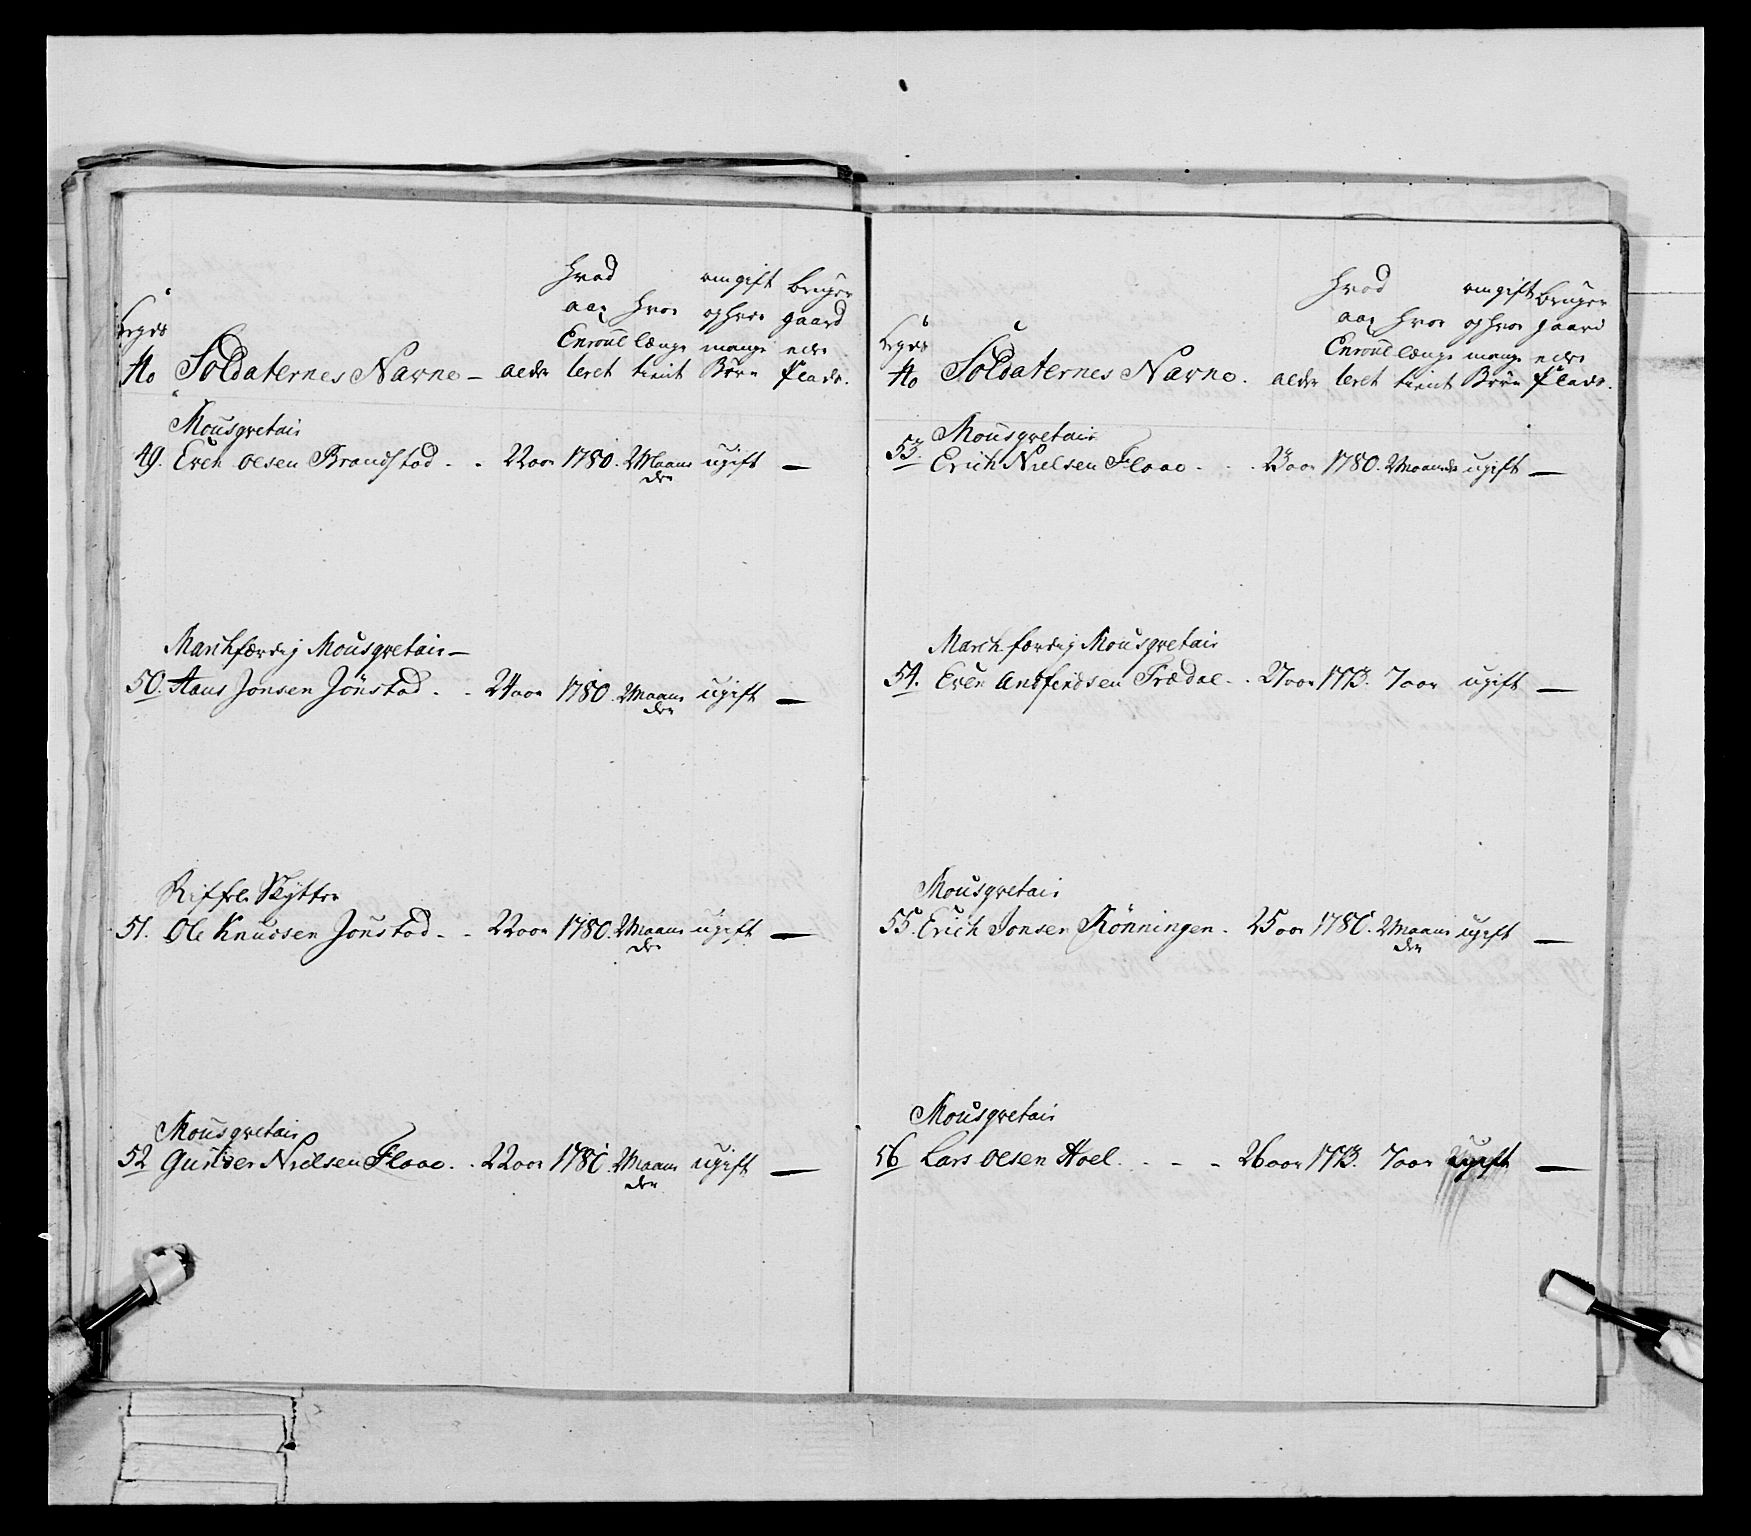 Legds
No Soldaternes Navne – alder
hvad aar Enroulleret
hvor længe tient
om gift og hvor mange Børn
bruger gaard eller Plads.
Mousqvetair
49. Even Olsen Brandstad - - 22 aar 1780. 2 Maaneder ugift —
Marchfærdig Mousqvetair –
50. Hans Jonsen Jonstad - - 24 aar 1780. 2 Maaneder ugift —
Riffel Skytter
51. Ole Knudsen Jonstad - - 22 aar 1780. 2 Maaneder ugift —
Mousqvetair
52 Gunder Nielsen Floae. - 22 aar 1780. 2 Maaneder ugift —
Legds
No Soldaternes Navne. alder
hvad aar Enroulleret
hvor længe tient
om gift og hvor mange Børn
bruger gaard eller Plads.
Mousqvetair
53. Erich Nielsen Floae - - 23 aar 1780. 2 Maaneder ugift —
March færdig Mousqvetair
54. Even Andfindsen Trædal - - 27 aar 1773. 7 aar ugift —
Mousqvetair
55. Erich Jonsen Rönningen - 25 aar 1780. 2 Maaneder ugift —
Mousqvetair
56 Lars Olsen Hoel. - - - 26 aar 1773. 7 aar ugift —